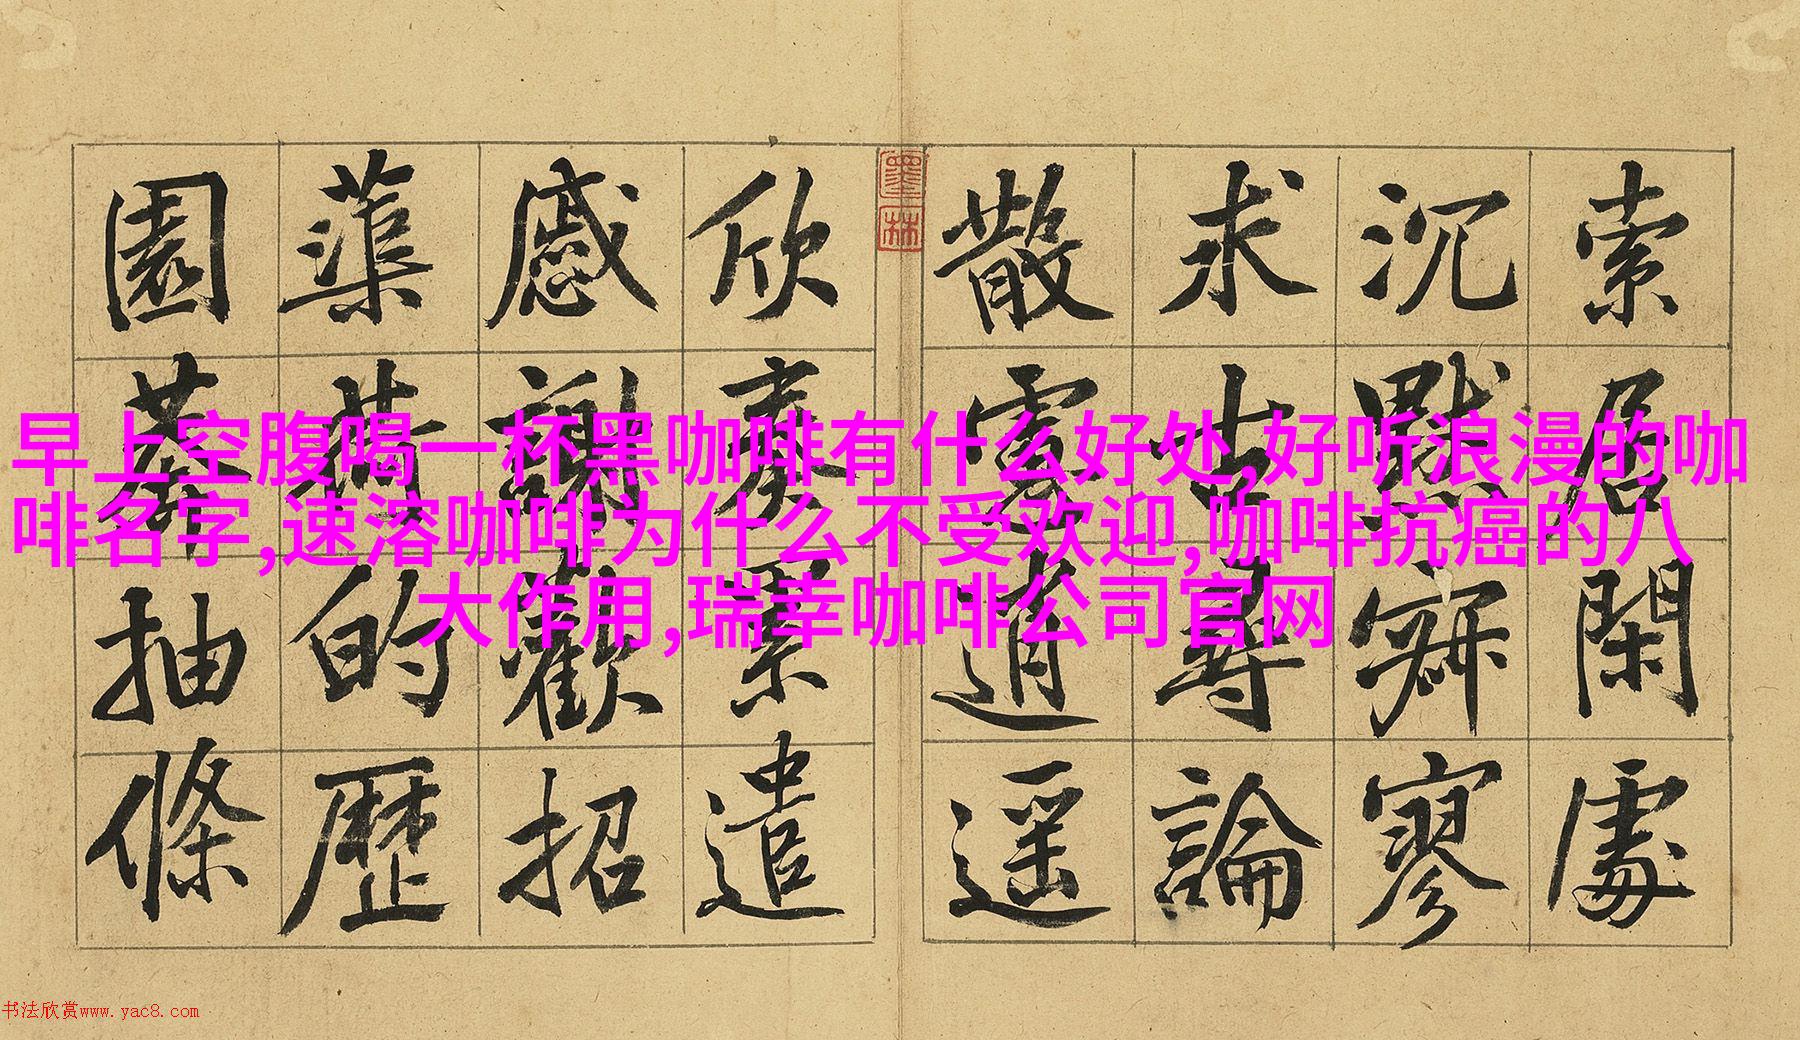 早上空腹喝一杯黑咖啡有什么好处,好听浪漫的咖
啡名字,速溶咖啡为什么不受欢迎,咖啡抗癌的八
大作用,瑞幸咖啡公司官网
索居閑處
沉默寂寥
求古尋論
散慮逍遥
欣奏累遣
慼謝歡招
蕖荷的歷
園莽抽條
墨林
书法欣赏www.yac8.com